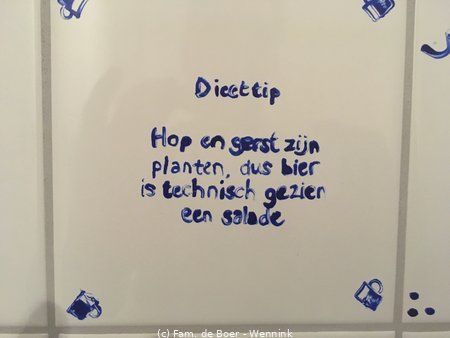 Dieettip
Hop en gerst zijn
planten, dus bier
is technisch gezien
een salade
(c) Fam. de Boer - Wennink